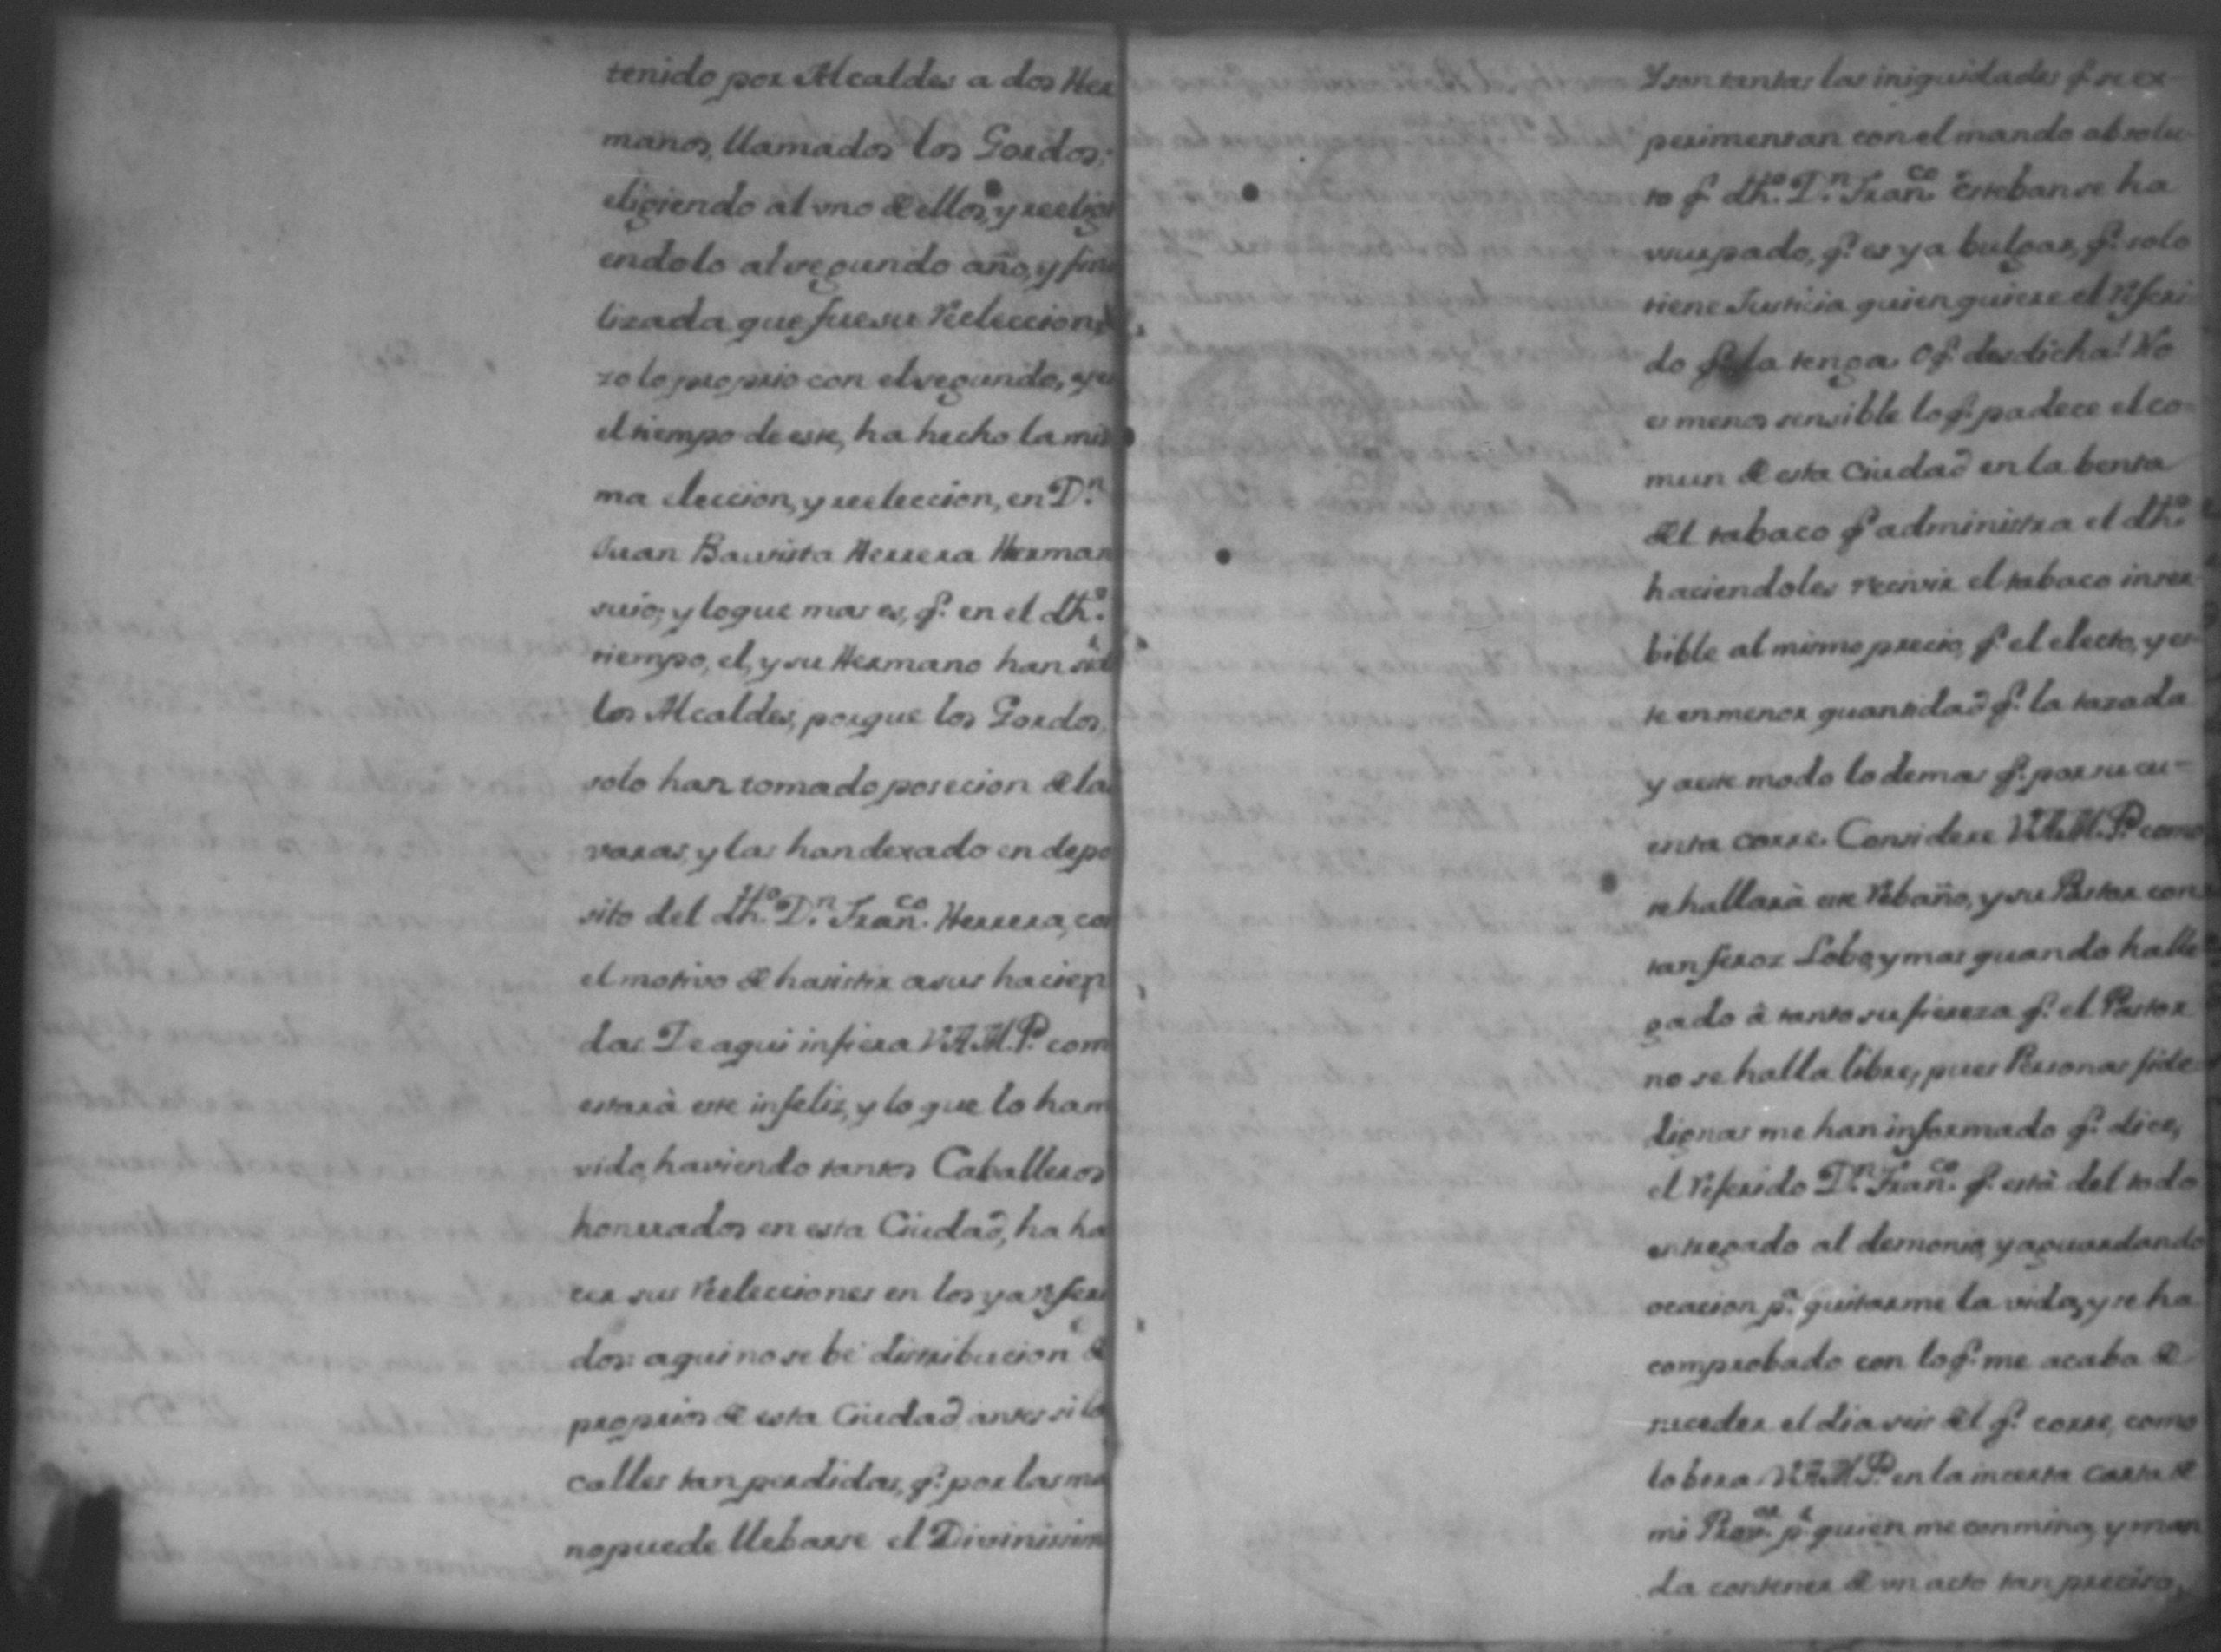 tenido por Alcaldes a dos Her
manos, llamados los Gordos;
eligiendo al vno de ellos, y reeligi
endolo al segundo año, y fina
lizada que fue su Reeleccion,
zo lo proprio con el segundo, y
el tiempo de este, ha hecho la mis
ma eleccion, y reeleccion, en Dn.
Juan Bautista Herrera Herman
suio; y lo que mas es, q.e en el dho.
tiempo, el, y su Hermano han sid
los Alcaldes, porque los Gordos,
solo han tomado posecion de la
varas, y las han dexado en depo
sito del dho. Dn. Franco. Herrera, co
el motivo de hasistir a sus hacien
das. De aqui infiera V.A.M.P. com
estarà este infeliz, y lo que lo ham
vido, haviendo tantos Caballeros
honrrados en esta Ciudad, ha ha
cer sus Reelecciones en los ya refer
dos: aqui no se bè distribucion de
proprios de esta Ciudad, antes si la
calles tan perdidas, q.e por las ma
no puede llebarse el Divinissim
Y son tantas las iniquidades q.e se ex-
perimentan con el mando absolu-
to q.e dho. Dn. Franco. Esteban se ha
vsurpado, q.e es ya bulgar, q.e solo
tiene Justicia quien quiere el Referi-
do q.e la tenga. O q.e desdicha! No
es menos sensible lo q.e padece el co-
mun de esta Ciudad en la benta
del tabaco q.e administra el dho.
haciendoles recivir el tabaco inser-
bible al mismo precio, q.e el electo, y es-
te en menor quantidad q.e la tazada
y a este modo lo demas q.e por su cu-
enta corre. Considere V.A.M.P. como
se hallarà este Rebaño, y su Pastor con
tan feroz Lobo, y mas quando ha lle
gado à tanto su fiereza q.e el Pastor
no se halla libre, pues Personas fide-
dignas me han informado q.e dice,
el Referido Dn. Franco. q.e està del todo
entregado al demonio, y aguardando
ocacion pa. quitarme la vida, y se ha
comprobado con lo q.e me acaba de
suceder el dia seis del q.e corre, como
lo bera V.A.M.P. en la incerta carta de
mi Provor. pr. quien me conmina, y man
da contener de vn acto tan preciso,